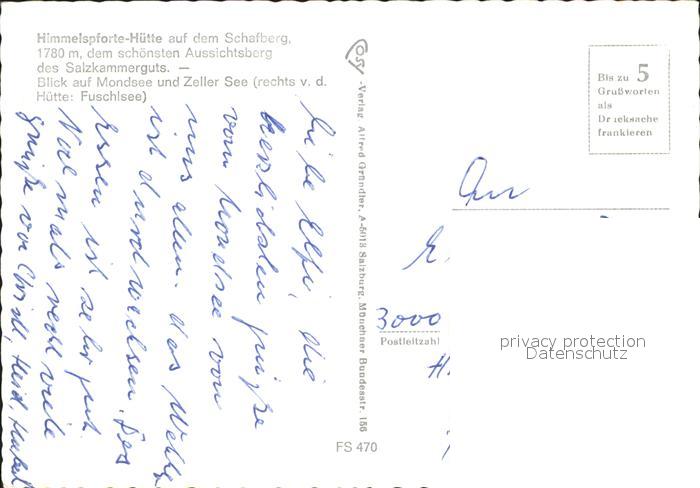 Himmelspforte-Hütte auf dem Schafberg,
1780 m, dem schönsten Aussichtsberg
des Salzkammerguts. —
Blick auf Mondsee und Zeller See (rechts v. d.
Hütte: Fuschlsee)
Liebe Elfi, die
herzlichsten Grüße
vom Mondsee von
uns allen. das Wetter
ist durchwachsen. Das
Essen ist sehr gut.
Nochmals recht viele
Grüße von
Cosy
-Verlag Alfred Gründler, A-5013 Salzburg, Münchner Bundesstr. 156
FS 470
Bis zu 5
Grußworten
als
Drucksache
frankieren
An
E.
3000
Postleitzahl
H.
privacy protection
Datenschutz